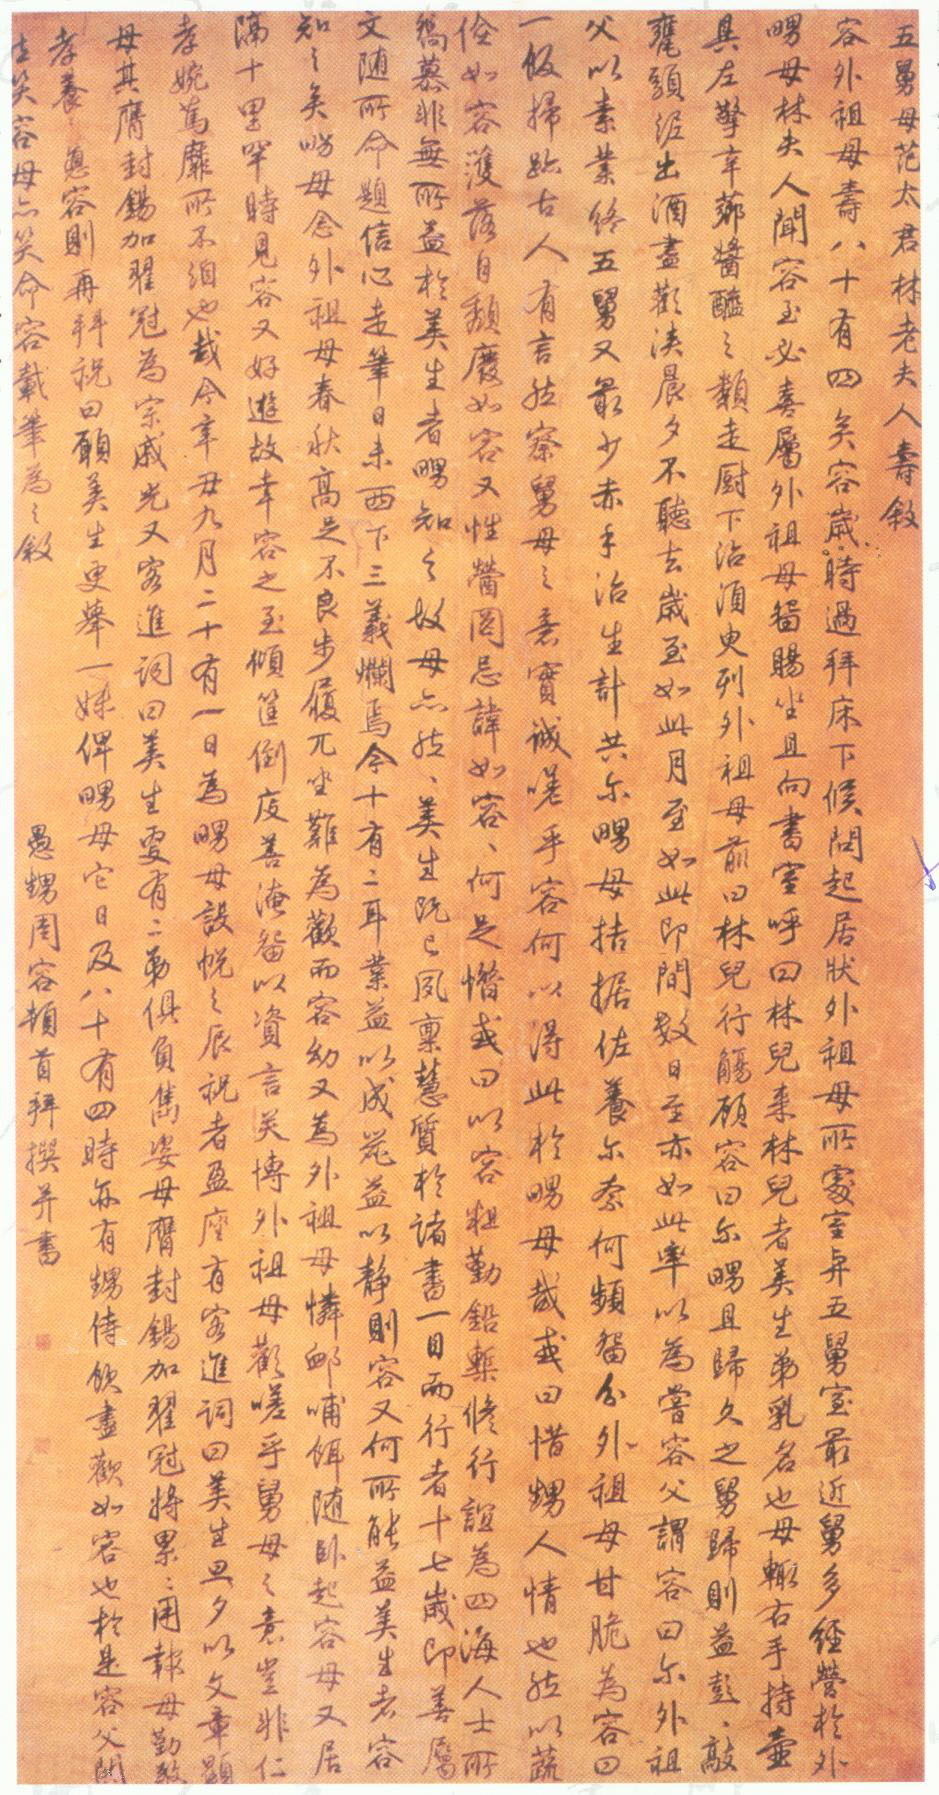 五舅母范太君林老夫人壽敘
容外祖母壽八十有四矣容歲時過拜床下候問起居狀外祖母所處室與五舅室最近舅多經營於外
舅母林夫人聞容至必喜屬外祖母留賜坐且向書室呼曰林兒來林兒者美生弟乳名也母輒右手持壺
具左擎辛薌醬醢之類走廚下治須臾列外祖母前曰林兒行觴顧容曰尔舅且歸久之舅歸則益彭彭敲
甕頭經出酒盡歡浹晨夕不聽去歲至如此月至如此即間數日至亦如此率以為嘗容父謂容曰尔外祖
父以素業終五舅又最少赤手治生計共尔舅母拮据佐養尔奈何頻留分外祖母甘脆為容曰
一飯掃跡古人有言然察舅母之意實誠嗟乎容何以得此於舅母哉或曰惜甥人情也然以蔬
俭如容濩落自頹廢如容又性簡罔忌諱如容何足惜或曰以容粗勤鉛槧修行誼為四海人士所
稱慕非無所益於美生者舅知之故母亦然然美生既已夙稟慧質於諸書一目而行者十七歲即善屬
文隨所命題信心走筆日未西下三義爛焉今十有二耳業益以成器益以靜則容又何所能益美生者容
知之矣舅母念外祖母春秋高足不良步履兀坐難為歡而容幼又為外祖母憐卹哺餌隨臥起容母又居
隔十里罕時見容又好遊故幸容之至傾筐倒庋善淹留以資言笑博外祖母歡嗟乎舅母之意豈非仁
孝婉篤靡所不洎也哉今辛丑九月二十有一日為舅母設帨之辰祝者盈座有客進詞曰美生旦夕以文章顯
母其膺封錫加翟冠為宗戚光又客進詞曰美生更有二弟俱負雋姿母膺封錫加翟冠將累累用報母勤劬
孝養養焉容則再拜祝曰願美生更舉一妹俾舅母它日及八十有四時亦有甥侍飲盡歡如容也於是容父聞
生笑容母亦笑命容載筆為之敘
愚甥周容頓首拜撰并書